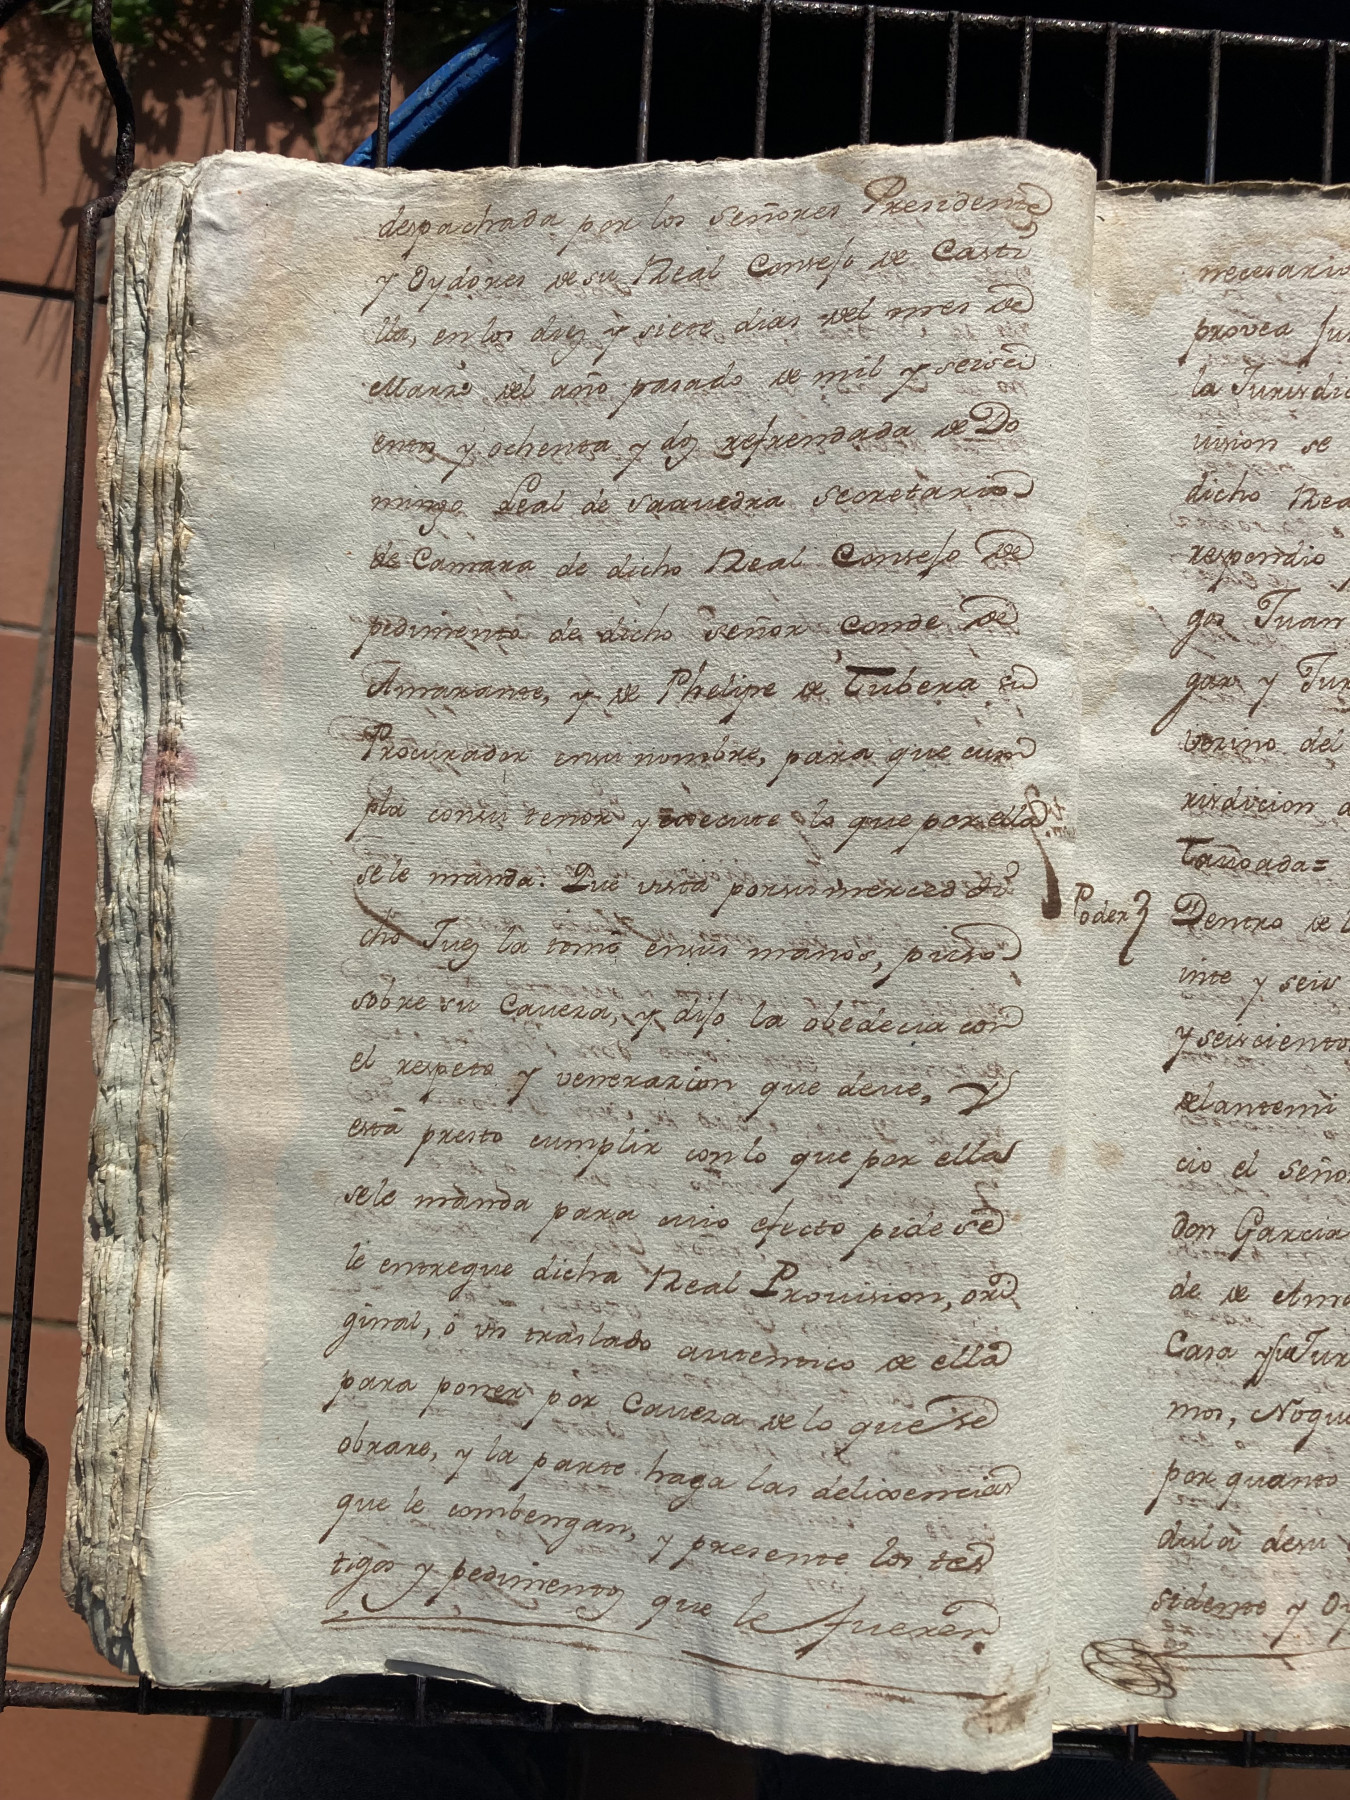 despachada por los señores Presidente
y Oydores de su Real Consejo de Casti
lla, en los diez y siete dias del mes de
Marzo del año pasado de mil y seisci
entos y ochenta y dos refrendada de Do
mingo Leal de Saavedra secretario
de Camara de dicho Real Consejo de
pedimento de dicho señor Conde de
Amarante, y de Phelipe de Tubera su
Procurador en su nombre, para que cum
pla con su tenor y execute lo que por ella
se le manda: Que vista por su merced di
cho Juez la tomó en sus manos, puso
sobre su Caveza, y dijo la obedecia con
el respeto y venerazion que deve, y
está presto cumplir con lo que por ella
se le manda para cuio efecto pide se
le entregue dicha Real Provision, ori
ginal, ó un traslado autentico de ella
para poner por Caveza de lo que se
obrare, y la parte haga las delixencias
que le combengan, y presente los tes
tigos y pedimentos que le fueren
necesario
provea
la Jurisdi
uision se
dicho Rea
respondio
gos Juan
gars y
vecino del
risdicion
Tavoada=
Poder
Dentro de
inte y seis
y seiscientos
delantemi
cio el Seño
don Garcia
de de Ama
Casa y su Jur
mos, Nogu
por quanto
dula de su
sidente y Oy